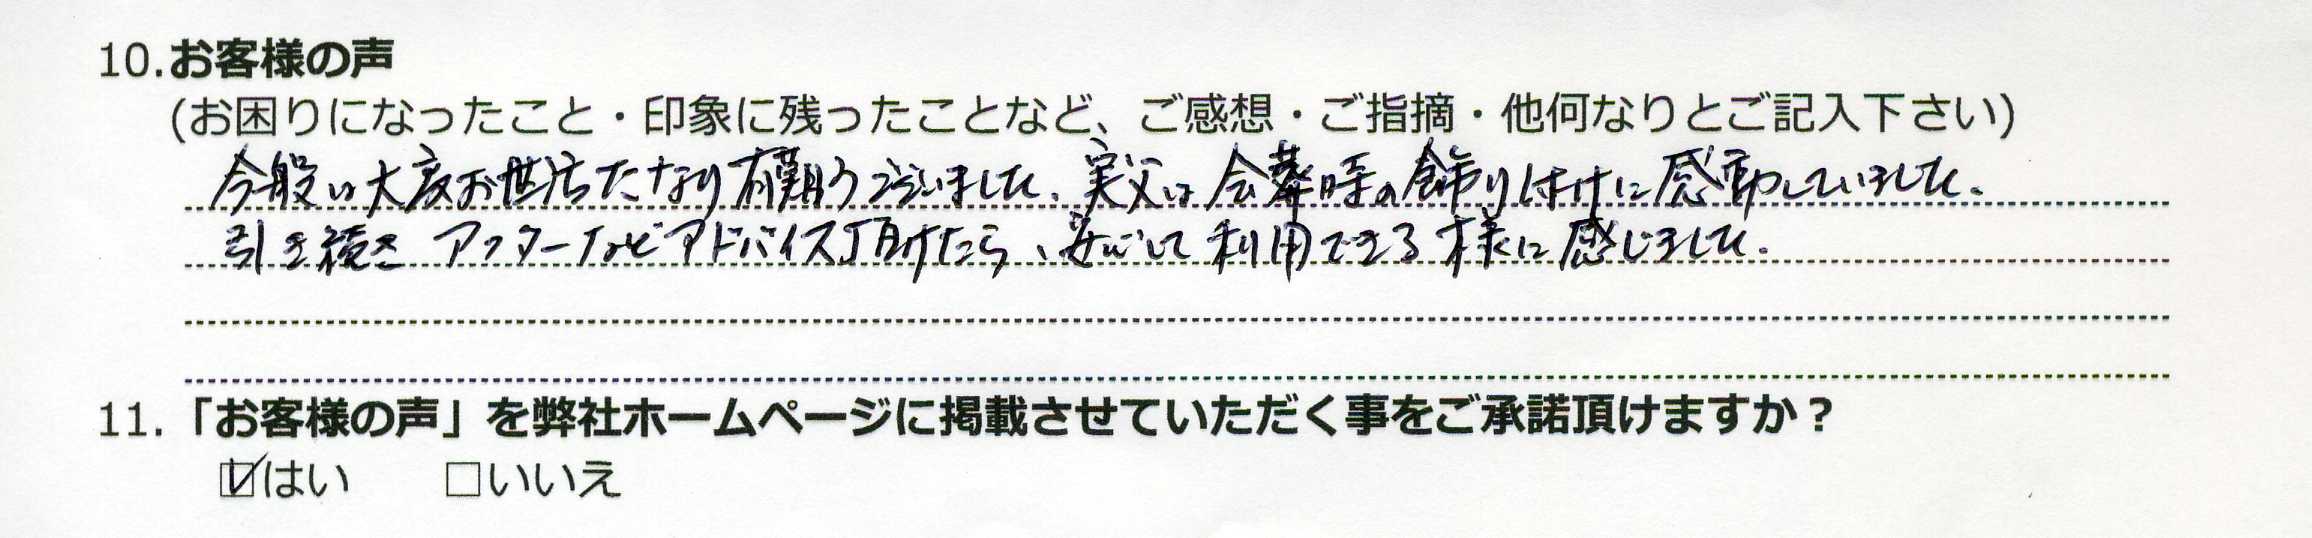 10.お客様の声
(お困りになったこと・印象に残ったことなど、ご感想・ご指摘・他何なりとご記入下さい)
今般は大変お世話になり有難うございました。実父は会葬時の飾り付けに感動していました。
引き続きアフターなどアドバイス頂けたら、安心して利用できる様に感じました。
11.「お客様の声」を弊社ホームページに掲載させていただく事をご承諾頂けますか？
☑はい　□いいえ